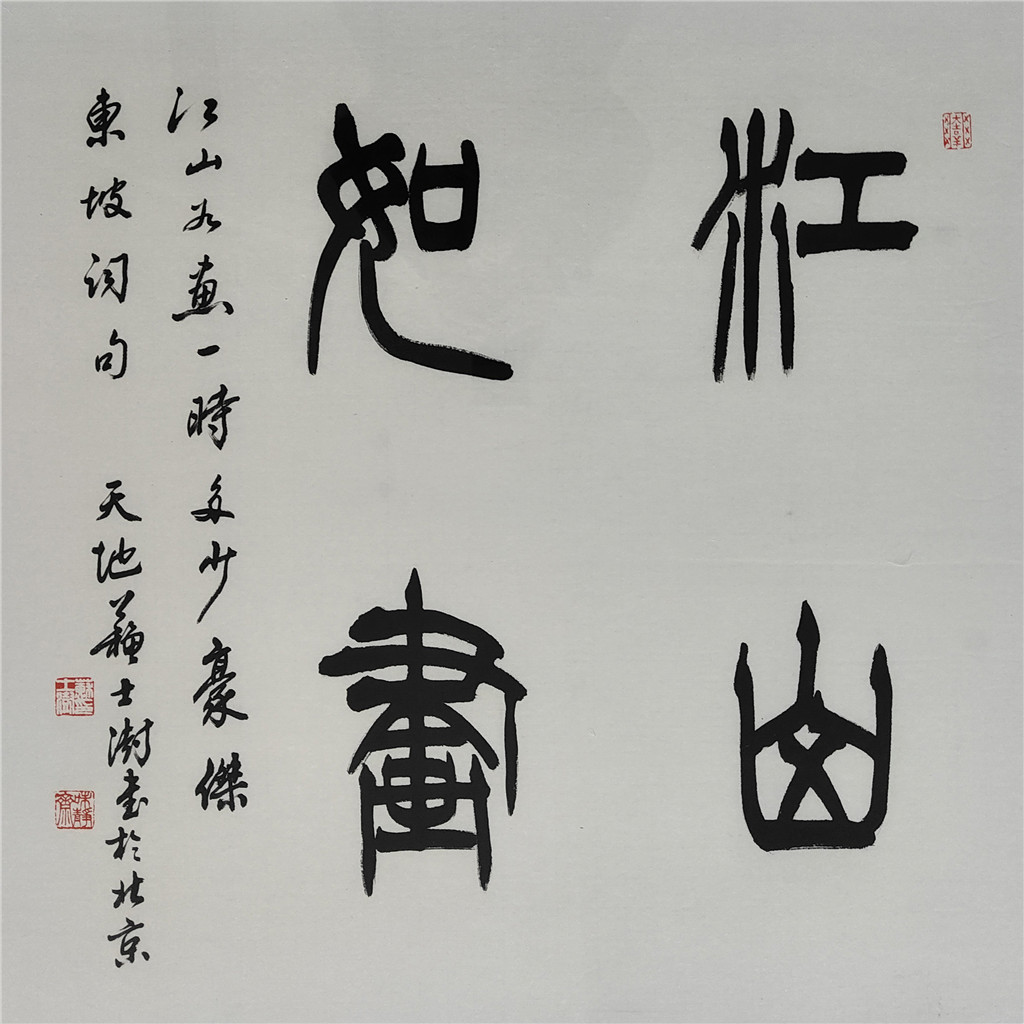 江山
如畫
江山如畫一時多少豪傑
東坡詞句 天地蘇士澍書於北京
大吉羊